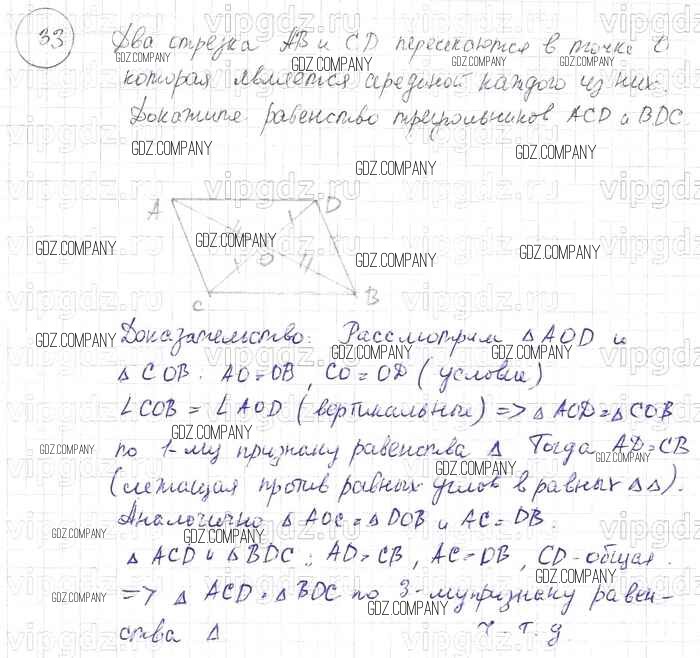 33 Два отрезка AB и CD пересекаются в точке O
которая является серединой каждого из них.
Докажите равенство треугольников ACD и BDC
A D
O
C B
Доказательство: Рассмотрим △AOD и
△COB. AO=OB, CO=OD (условие)
∠COB = ∠AOD (вертикальные) => △AOD=△COB
по 1-му признаку равенства △ Тогда AD=CB
(лежащая против равных углов в равных △△).
Аналогично △AOC=△DOB и AC=DB.
△ACD и △BDC: AD=CB, AC=DB, CD-общая.
=> △ACD=△BDC по 3-му признаку равен-
ства △ ч.т.д.
GDZ.COMPANY
vipgdz.ru